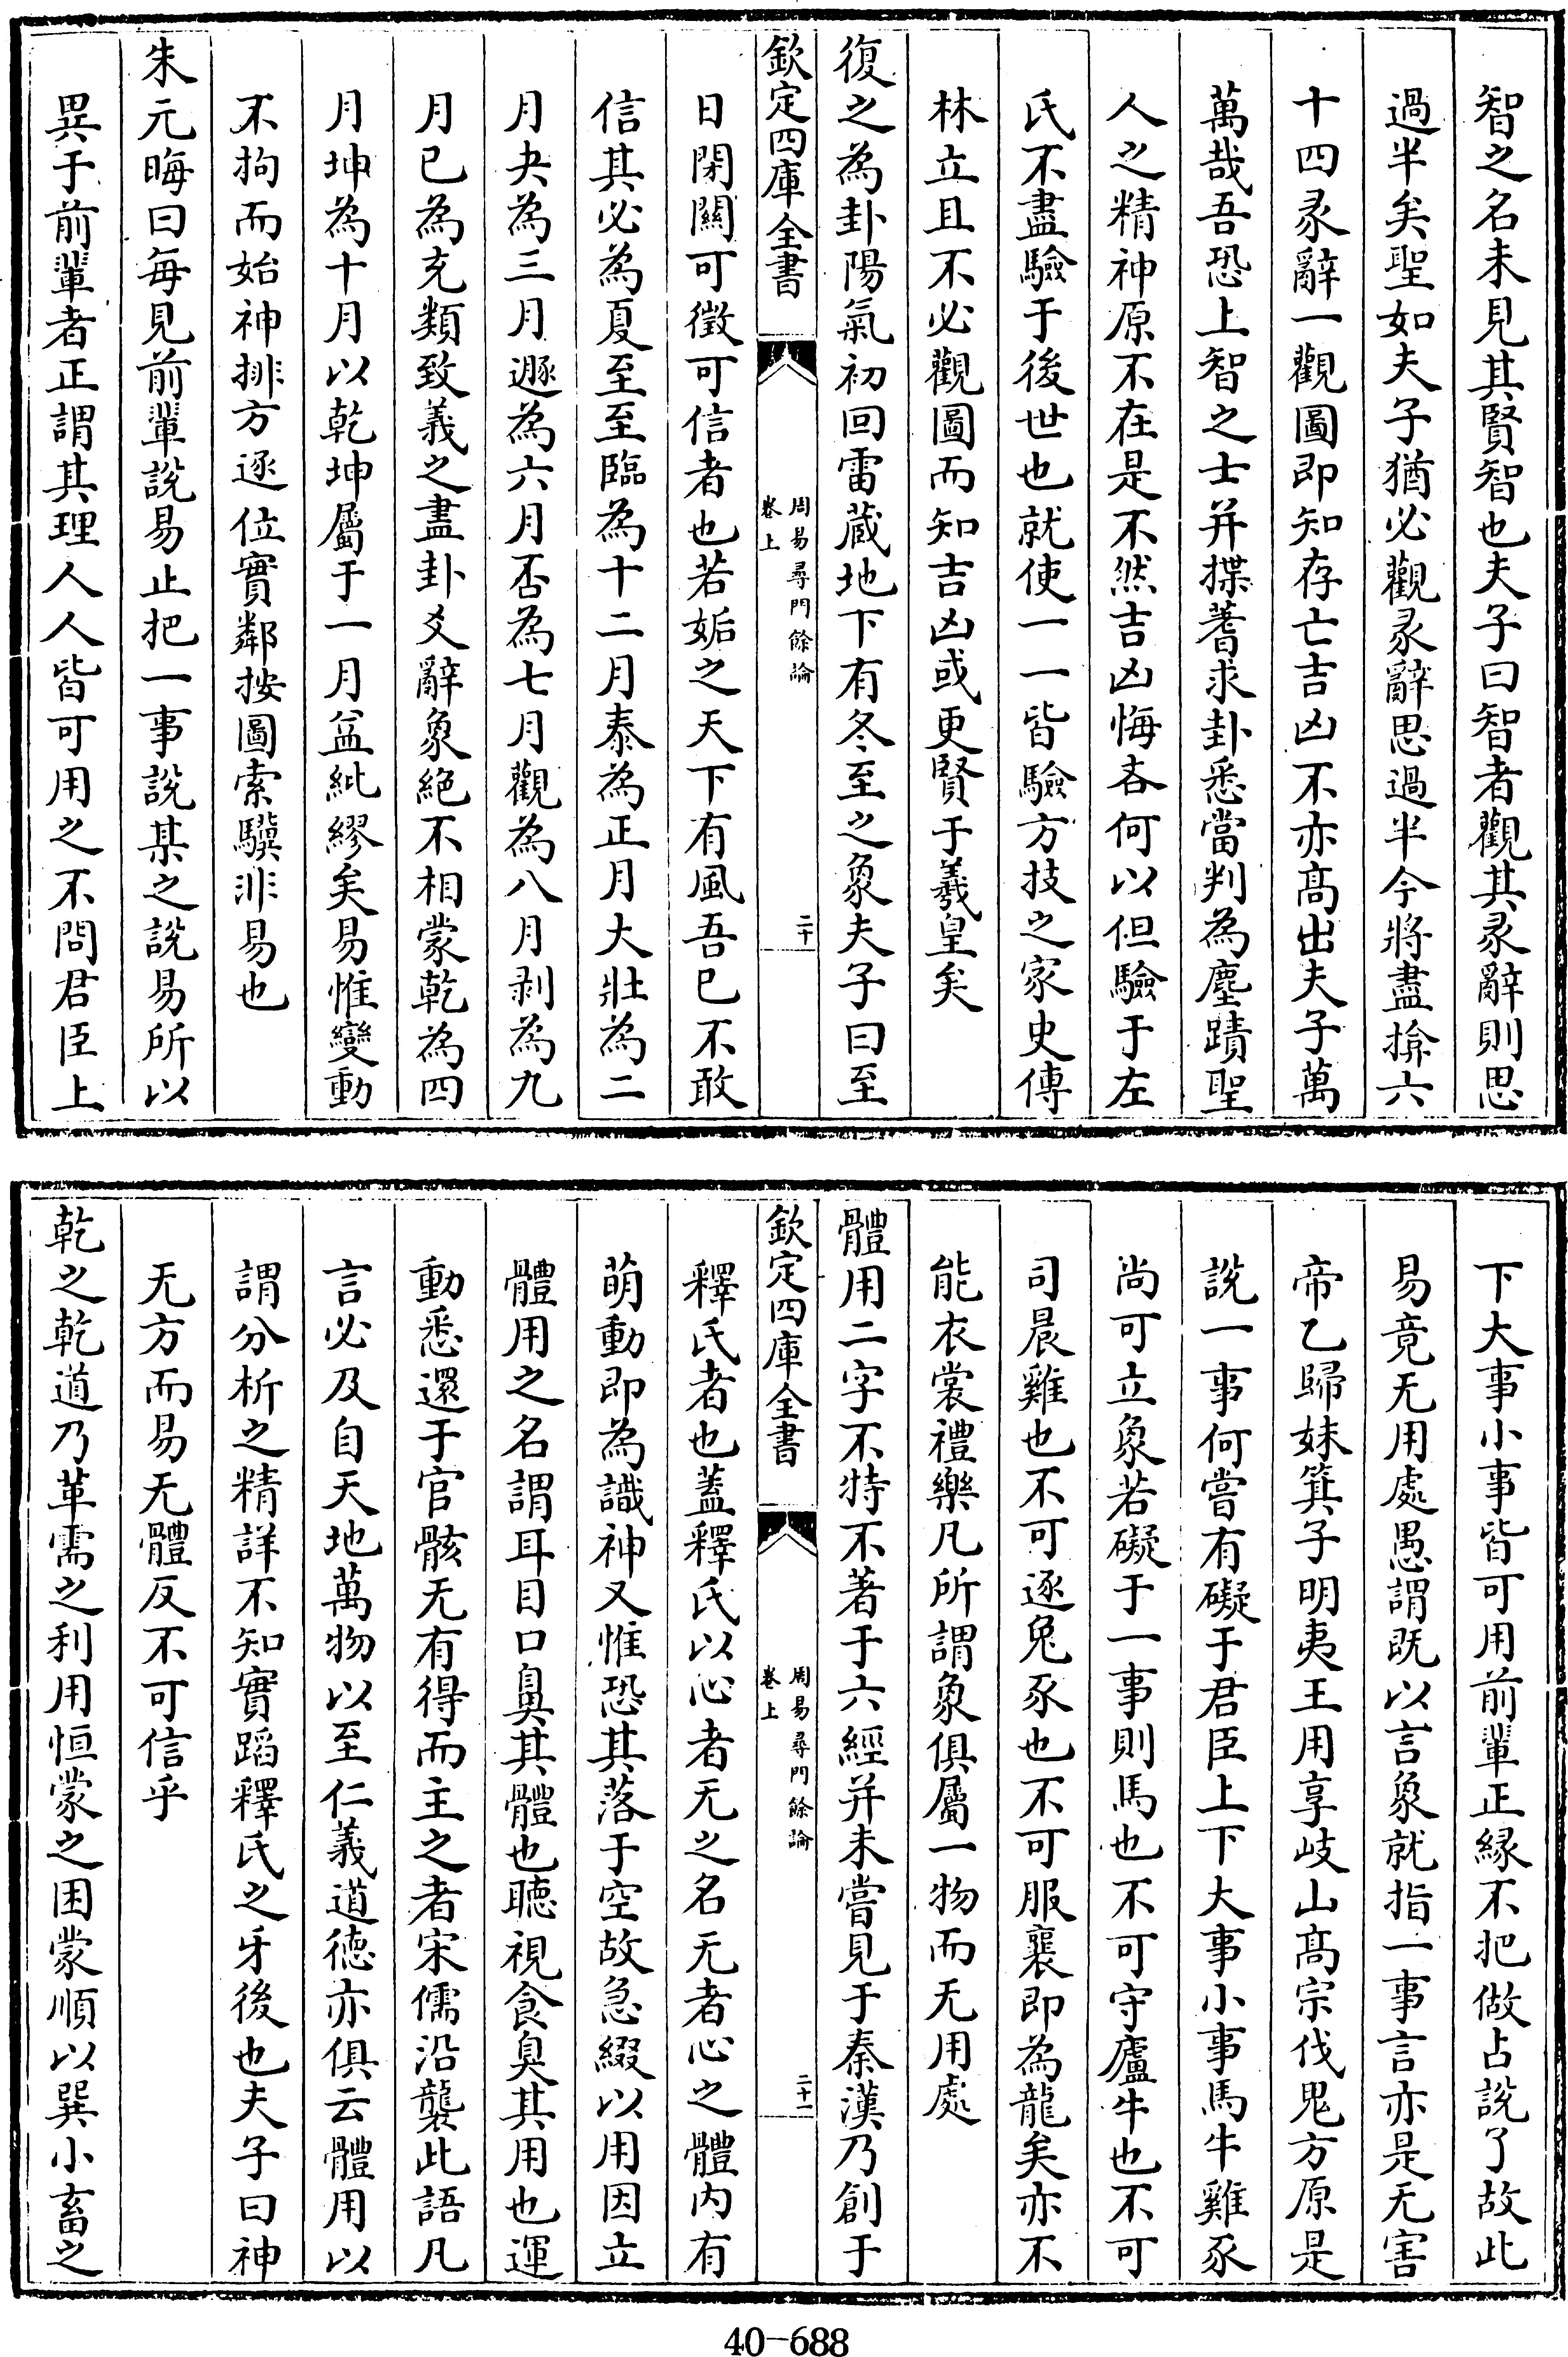 智之名未見其賢智也夫子曰智者觀其彖辭則思
過半矣聖如夫子猶必觀彖辭思過半今將盡揜六
十四彖辭一觀圖即知存亡吉凶不亦髙出夫子萬
萬哉吾恐上智之士并揲蓍求卦悉當判為塵蹟聖
人之精神原不在是不然吉凶悔吝何以但驗于左
氏不盡驗于後世也就使一一皆驗方技之家史傳
林立且不必觀圖而知吉凶或更賢于羲皇矣
復之為卦陽氣初回雷蔵地下有冬至之象夫子曰至
欽定四庫全書
周易尋門餘論
卷上
二十
日閉關可徵可信者也若姤之天下有風吾已不敢
信其必為夏至至臨為十二月泰為正月大壯為二
月夬為三月遯為六月否為七月觀為八月剥為九
月已為充類致義之盡卦爻辭象絶不相蒙乾為四
月坤為十月以乾坤屬于一月盆紕繆矣易惟變動
不拘而始神排方逐位實鄰按圖索驥非易也
朱元晦曰每見前輩説易止把一事説某之説易所以
異于前輩者正謂其理人人皆可用之不問君臣上
下大事小事皆可用前輩正緣不把做占説了故此
易竟无用處愚謂既以言象就指一事言亦是无害
帝乙歸妹箕子明夷王用享岐山髙宗伐鬼方原是
説一事何嘗有礙于君臣上下大事小事馬牛雞豕
尚可立象若礙于一事則馬也不可守廬牛也不可
司晨雞也不可逐兔豕也不可服襄即為龍矣亦不
能衣裳禮樂凡所謂象俱屬一物而无用處
體用二字不特不著于六經并未嘗見于秦漢乃創于
欽定四庫全書
周易尋門餘論
卷上
二十一
釋氏者也蓋釋氏以心者无之名无者心之體内有
萌動即為識神又惟恐其落于空故急綴以用因立
體用之名謂耳目口鼻其體也聽視食臭其用也運
動悉還于官骸无有得而主之者宋儒沿襲此語凡
言必及自天地萬物以至仁義道徳亦俱云體用以
謂分析之精詳不知實蹈釋氏之牙後也夫子曰神
无方而易无體反不可信乎
乾之乾道乃革需之利用恒蒙之困蒙順以巽小畜之
40-688